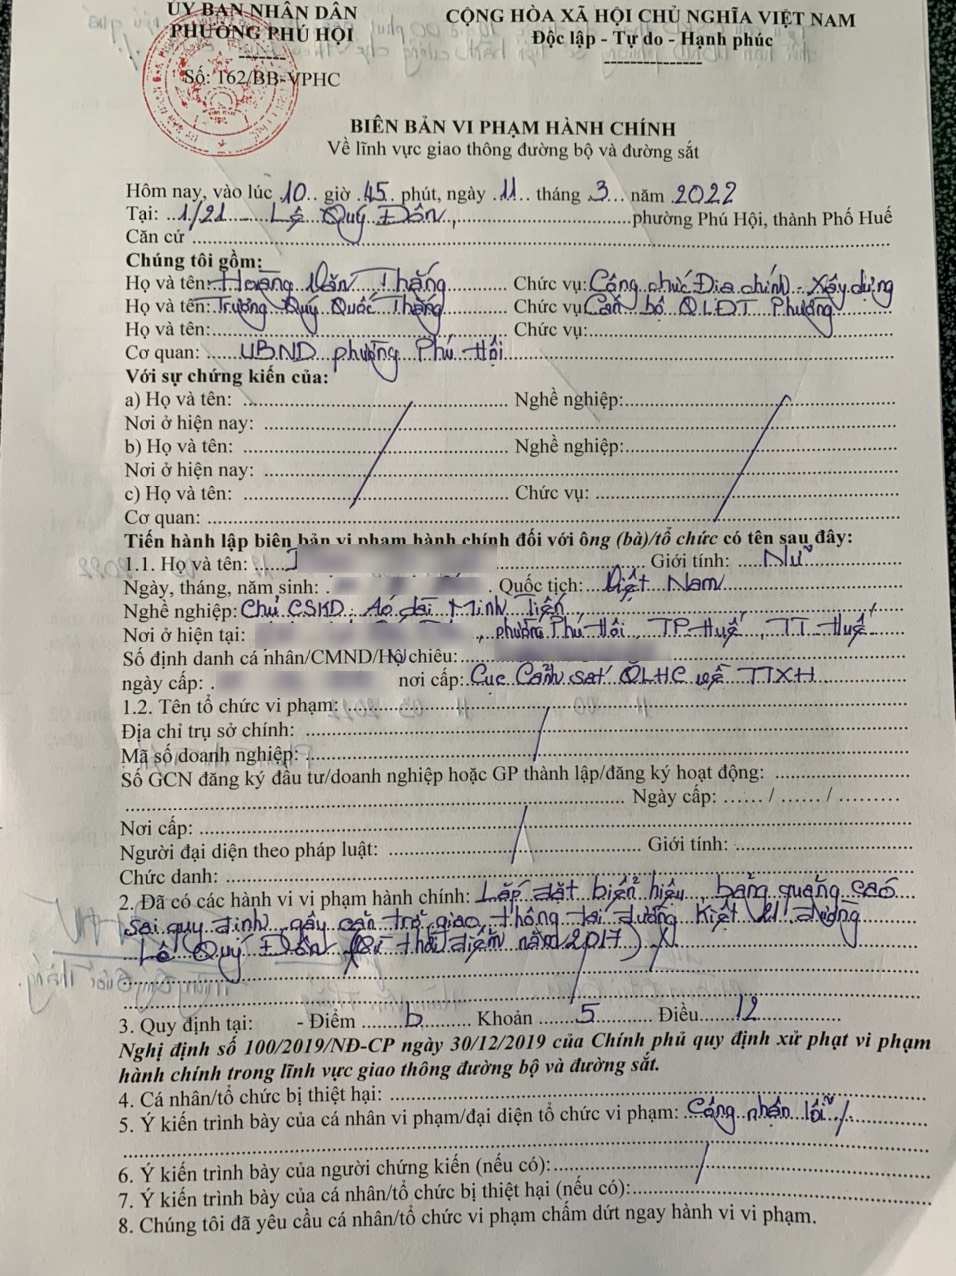 ỦY BAN NHÂN DÂN
PHƯỜNG PHÚ HỘI
-------
Số: 162/BB-VPHC
CỘNG HÒA XÃ HỘI CHỦ NGHĨA VIỆT NAM
Độc lập - Tự do - Hạnh phúc
---------------
BIÊN BẢN VI PHẠM HÀNH CHÍNH
Về lĩnh vực giao thông đường bộ và đường sắt
Hôm nay, vào lúc 10 giờ 45 phút, ngày 11 tháng 3 năm 2022
Tại: 1/21 Lê Quý Đôn, phường Phú Hội, thành Phố Huế
Căn cứ
Chúng tôi gồm:
Họ và tên: Hoàng Văn Thắng Chức vụ: Công chức Địa chính - Xây dựng
Họ và tên: Trương Quý Quốc Thắng Chức vụ Cán bộ QLĐT Phường
Họ và tên: Chức vụ:
Cơ quan: UBND phường Phú Hội
Với sự chứng kiến của:
a) Họ và tên: Nghề nghiệp:
Nơi ở hiện nay:
b) Họ và tên: Nghề nghiệp:
Nơi ở hiện nay:
c) Họ và tên: Chức vụ:
Cơ quan:
Tiến hành lập biên bản vi phạm hành chính đối với ông (bà)/tổ chức có tên sau đây:
1.1. Họ và tên: Giới tính: Nữ
Ngày, tháng, năm sinh: Quốc tịch: Việt Nam
Nghề nghiệp: Chủ CSKD: Áo dài Minh Tiện
Nơi ở hiện tại: , phường Phú Hội, TP Huế, TT. Huế
Số định danh cá nhân/CMND/Hộ chiếu:
ngày cấp: nơi cấp: Cục Cảnh sát QLHC về TTXH
1.2. Tên tổ chức vi phạm:
Địa chỉ trụ sở chính:
Mã số doanh nghiệp:
Số GCN đăng ký đầu tư/doanh nghiệp hoặc GP thành lập/đăng ký hoạt động:
Ngày cấp: ...... / ...... / .........
Nơi cấp:
Người đại diện theo pháp luật: Giới tính:
Chức danh:
2. Đã có các hành vi vi phạm hành chính: Lắp đặt biển hiệu, bảng quảng cáo
sai quy định, gây cản trở giao thông tại đường Kiệt 21 đường
Lê Quý Đôn (từ thời điểm năm 2017)
3. Quy định tại: - Điểm b Khoản 5 Điều 12
Nghị định số 100/2019/NĐ-CP ngày 30/12/2019 của Chính phủ quy định xử phạt vi phạm
hành chính trong lĩnh vực giao thông đường bộ và đường sắt.
4. Cá nhân/tổ chức bị thiệt hại:
5. Ý kiến trình bày của cá nhân vi phạm/đại diện tổ chức vi phạm: Công nhận lỗi /.
6. Ý kiến trình bày của người chứng kiến (nếu có):
7. Ý kiến trình bày của cá nhân/tổ chức bị thiệt hại (nếu có):
8. Chúng tôi đã yêu cầu cá nhân/tổ chức vi phạm chấm dứt ngay hành vi vi phạm.